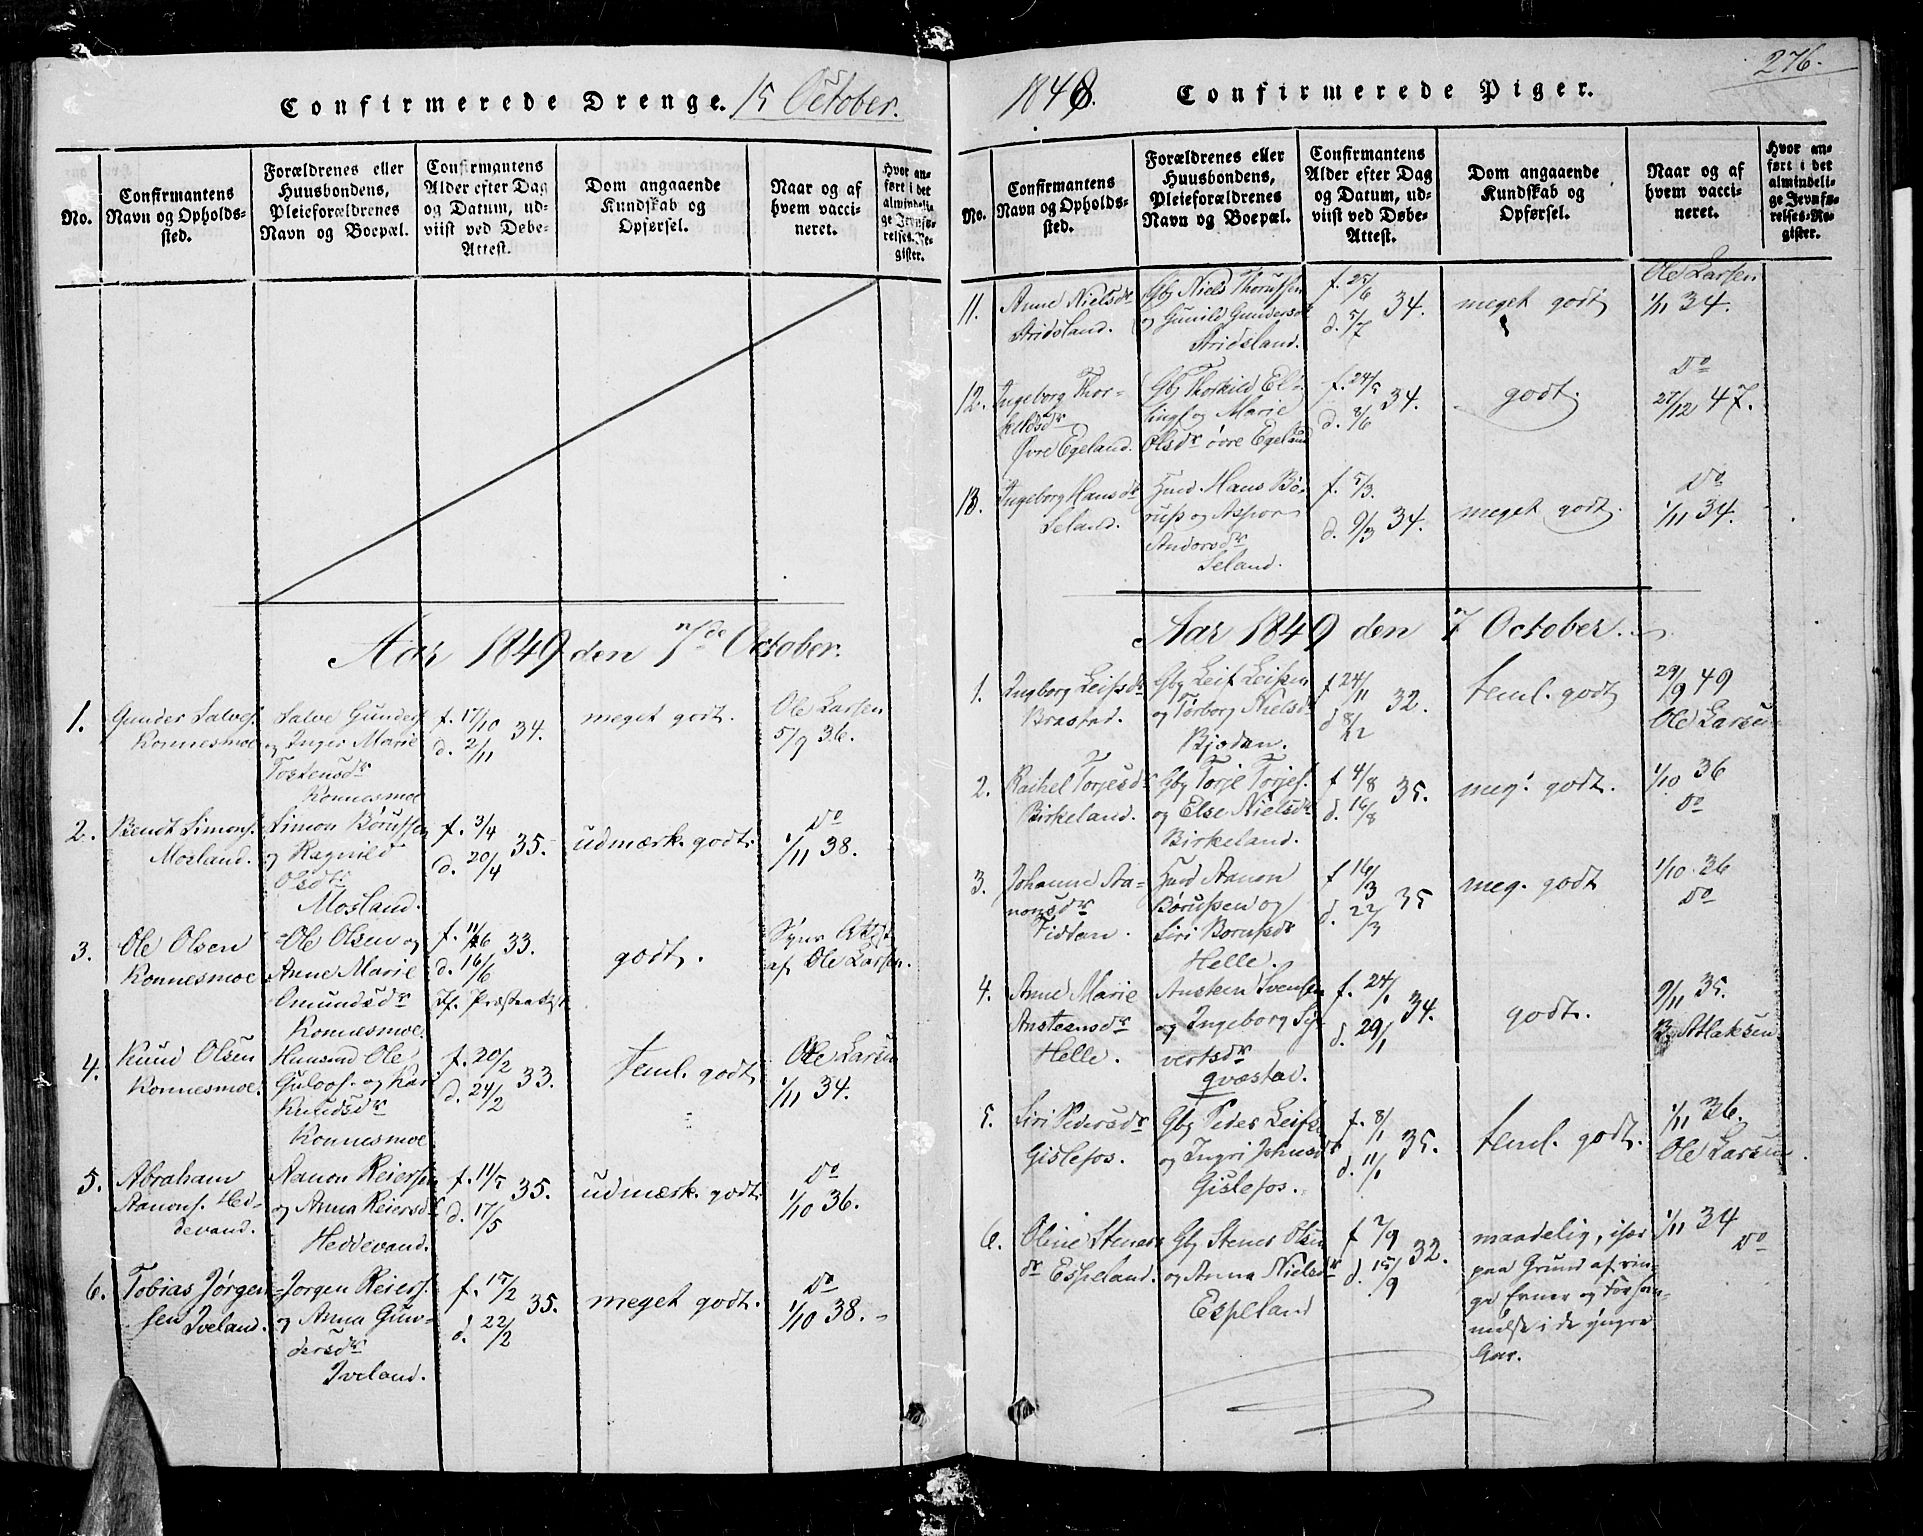 Confirmerede Drenge. 15 October.
No.
Confirmantens
Navn og Opholds-
sted.
Forældrenes eller
Huusbondens,
Pleieforældrenes
Navn og Boepæl.
Confirmantens
Alder efter Dag
og Datum, ud-
viist ved Døbe-
Attest.
Dom angaaende
Kundskab og
Opførsel.
Naar og af
hvem vacci-
neret.
Hvor an-
ført i det
almindeli-
ge Jevnfø-
relses-Re-
gister.
Aar 1849 den 7de October.
1.
Gunder Salves.
Konnesmoe
Salve Gunders.
og Inger Marie
Tostensdr
Konnesmoe
f. 17/10
d. 2/11
34.
meget godt.
Ole Larsen
5/9 36.
2.
Bendt Simons.
Mosland.
Simon Børufsen
og Ragnild
Olsdtr
Mosland.
f. 3/4
d. 20/4
35.
udmærk. godt.
Do
1/11 38.
3.
Ole Olsen
Konnesmoe
Ole Olsen og
Anne Marie
Omundsdr
Konnesmoe.
f. 11/6
d. 16/6
33.
godt.
af Ole Larsen.
4.
Knud Olsen
Konnesmoe.
Huusmd Ole
Gulovs. og Kar
Knudsdr
Konnesmoe
f. 20/2
d. 24/2
33.
teml. godt
Ole Larsen
1/11 34.
5.
Abraham
Aanons. Hed-
devand.
Aanon Reiersen
og Anna Reiersd
Heddevand.
f. 11/5
d. 17/5
35.
udmærk. godt
Do
1/10 36.
6.
Tobias Jørgen
sen Iveland.
Jørgen Reiers.
og Anna Gun-
dersdr
Iveland.
f. 15/2
d. 22/2
35.
meget godt.
Do
1/10 38.
276.
1848. Confirmerede Piger.
No.
Confirmantens
Navn og Opholds-
sted.
Forældrenes eller
Huusbondens,
Pleieforældrenes
Navn og Boepæl.
Confirmantens
Alder efter Dag
og Datum, ud-
viist ved Døbe-
Attest.
Dom angaaende
Kundskab og
Opførsel.
Naar og af
hvem vacci-
neret.
Hvor an-
ført i det
almindeli-
ge Jevnfø-
relses-Re-
gister.
11.
Anne Nielsdr
Aridsland.
Gbr Niels Thorufsen
og Gunild Gundersdr
Aridsland.
f. 25/6
d. 5/7
34.
meget godt
Ole Larsen
1/11 34.
12.
Ingeborg Thor-
kildsdr
Øvre Egeland.
Gbr Thorkild El-
lingf og Marie
Olsdr øvre Egeland
f. 24/5
d. 8/6
34.
godt.
Do
27/12 47.
13.
Ingeborg Hansdr
Seland.
Huusd Hans Bø-
rufs og Aspor
Andersdr
Seland.
f. 5/3.
d. 9/3
34.
meget godt.
Do
1/11 34.
Aar 1849 den 7 October.
1.
Ingborg Leifsdr
Brastad.
Gbr Leif Leifsen
og Torborg Nielsd
Bjødan.
f 24/11
d 8/12
32.
teml. godt
29/9 49
Ole Larsen
2.
Rachel Torjesdr
Birkeland.
Gbr Torje Torjes.
og Else Nielsdr
Birkeland.
f 4/8
d. 16/8
35.
meg. godt.
1/10 36
Do
3.
Johanne Aa-
nonsdr
Tidtan.
Husd Aanon
Børufsen og
Siri Borufsdr
Helle.
f 16/3
d. 22/3
35
meg. godt
1/10 36
Do
4.
Anne Marie
Anstensdr
Helle.
Ansten Svensen
og Ingeborg Si-
vertsdr
Qvæstad.
f. 24/1
d. 29/1
34.
godt.
9/11 35.
Aslaksen
5.
Siri Pedersdr
Gislefos.
Gbr Peder Leifs.
og Ingri Johnsdr
Gislefos.
f. 8/1
d. 11/1
35.
teml. godt.
1/11 36.
Ole Larsen
6.
Oline Steners
dr Espeland.
Gbr Stener Olsen
og Anna Nielsdr
Espeland
f 7/9
d. 15/9
32.
maadelig, især
paa Grund af rin-
ge Evner og Forsøm-
melse i de yngre
Aar.
1/11 34
Do